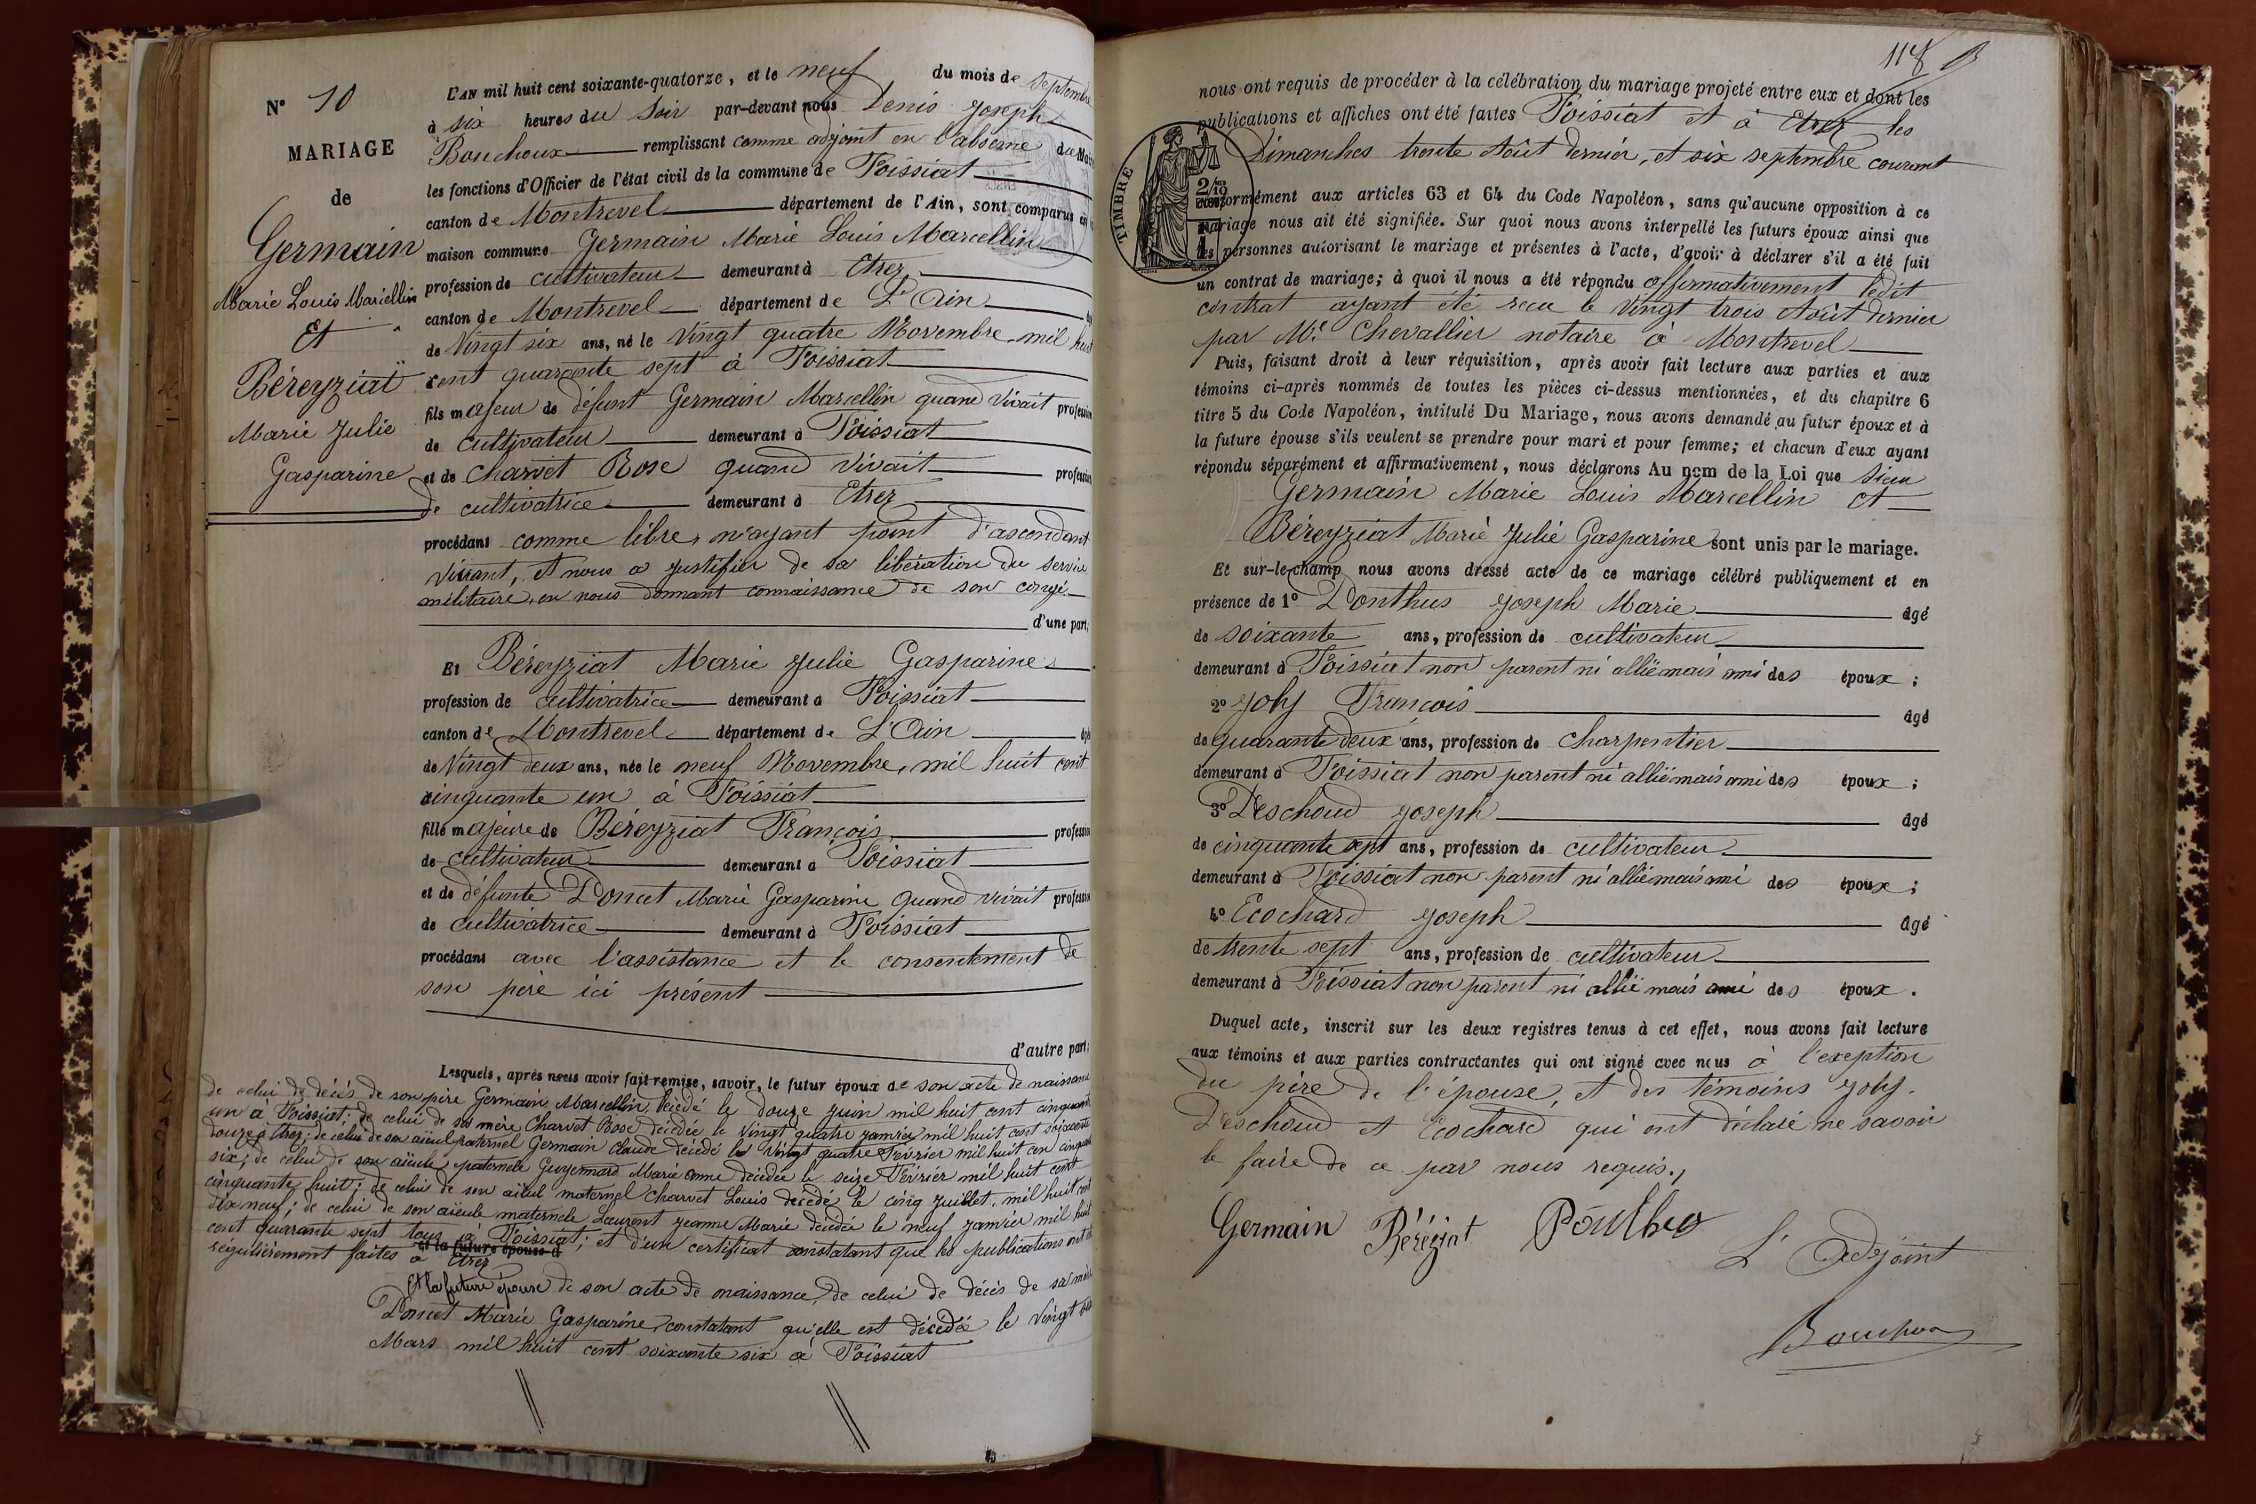 N° 10
MARIAGE
de
Germain
Marie Louis Marcellin
Et
Béreyziat
Marie Julie
Gasparine
L'AN mil huit cent soixante-quatorze, et le neuf du mois de Septembre
à six heures du Soir par-devant nous Denis Joseph
Bouchoux remplissant comme adjoint en l'absence du Maire
les fonctions d'Officier de l'état civil de la commune de Foissiat
canton de Montrevel département de l'Ain, sont comparus en
maison commune Germain Marie Louis Marcellin
profession de cultivateur demeurant à Etrez
canton de Montrevel département de L'Ain âgé
de Vingt six ans, né le Vingt quatre Novembre mil huit
cent quarante sept à Foissiat
fils majeur de défunt Germain Marcellin quand vivait profession
de cultivateur demeurant à Foissiat
et de Charvet Rose quand vivait profession
de cultivatrice demeurant à Etrez
procédant comme libre, n'ayant point d'ascendant
vivant, et nous a justifier de sa libération du service
militaire, en nous donnant connaissance de son congé
d'une part;
Et Béreyziat Marie Julie Gasparine
profession de cultivatrice demeurant à Foissiat
canton de Montrevel département de L'Ain âgée
de Vingt deux ans, née le neuf Novembre, mil huit cent
cinquante un à Foissiat
fille majeure de Béreyziat François profession
de cultivateur demeurant à Foissiat
et de défunte Doncet Marie Gasparine quand vivait profession
de cultivatrice demeurant à Foissiat
procédant avec l'assistance et le consentement de
son père ici présent
d'autre part;
Lesquels, après nous avoir fait remise, savoir, le futur époux de son acte de naissance
de celui de décès de son père Germain Marcellin, décédé le douze juin mil huit cent cinquante
un à Foissiat; de celui de sa mère Charvet Rose décédée le Vingt quatre janvier mil huit cent soixante
douze à Etrez; de celui de son aïeul paternel Germain Claude décédé le Vingt quatre Février mil huit cen cinquante
six; de celui de son aïeule paternelle Guyennard Marie Anne décédée le seize Février mil huit cent
cinquante huit; de celui de son aïeul maternel Charvet Louis décédé le cinq Juillet mil huit cent
dix neuf; de celui de son aïeule maternele Laurent Jeanne Marie décédée le neuf janvier mil huit
cent quarante sept tous à Foissiat; et d'un certificat constatant que les publications ont été
régulièrement faites à Etrez et la future épouse d
Et la future épouse de son acte de naissance, de celui de décès de sa mère
Doncet Marie Gasparine, constatant qu'elle est décédée le Vingt
Mars mil huit cent soixante six à Foissiat
118
nous ont requis de procéder à la célébration du mariage projeté entre eux et dont les
publications et affiches ont été faites Foissiat et à Etrez les
Dimanches trente Août dernier, et six septembre courant
TIMBRE
2/10
EN SUS
conformément aux articles 63 et 64 du Code Napoléon, sans qu'aucune opposition à ce
mariage nous ait été signifiée. Sur quoi nous avons interpellé les futurs époux ainsi que
les personnes autorisant le mariage et présentes à l'acte, d'avoir à déclarer s'il a été fait
un contrat de mariage; à quoi il nous a été répondu affirmativement ledit
contrat ayant été recu le Vingt trois Août dernier
par Me Chevallier notaire à Montrevel
Puis, faisant droit à leur réquisition, après avoir fait lecture aux parties et aux
témoins ci-après nommés de toutes les pièces ci-dessus mentionnées, et du chapitre 6
titre 5 du Code Napoléon, intitulé Du Mariage, nous avons demandé au futur époux et à
la future épouse s'ils veulent se prendre pour mari et pour femme; et chacun d'eux ayant
répondu séparément et affirmativement, nous déclarons Au nom de la Loi que Sieur
Germain Marie Louis Marcellin et
Béreyziat Marie Julie Gasparine sont unis par le mariage.
Et sur-le-champ nous avons dressé acte de ce mariage célébré publiquement et en
présence de 1° Ponthus Joseph Marie âgé
de soixante ans, profession de cultivateur
demeurant à Foissiat non parent ni allié mais ami des époux;
2° Joly François âgé
de quarante deux ans, profession de Charpentier
demeurant à Foissiat non parent ni allié mais ami des époux;
3° Deschoud Joseph âgé
de cinquante sept ans, profession de cultivateur
demeurant à Foissiat non parent ni allié mais ami des époux;
4° Ecochard Joseph âgé
de trente sept ans, profession de cultivateur
demeurant à Foissiat non parent ni allié mais ami des époux.
Duquel acte, inscrit sur les deux registres tenus à cet effet, nous avons fait lecture
aux témoins et aux parties contractantes qui ont signé avec nous à l'exeption
du père de l'épouse, et des témoins Joly.
Deschoud et Ecochard qui ont déclaré ne savoir
le faire de ce par nous requis.
Germain Béréziat Ponthus
L'Adjoint
Bouchoux